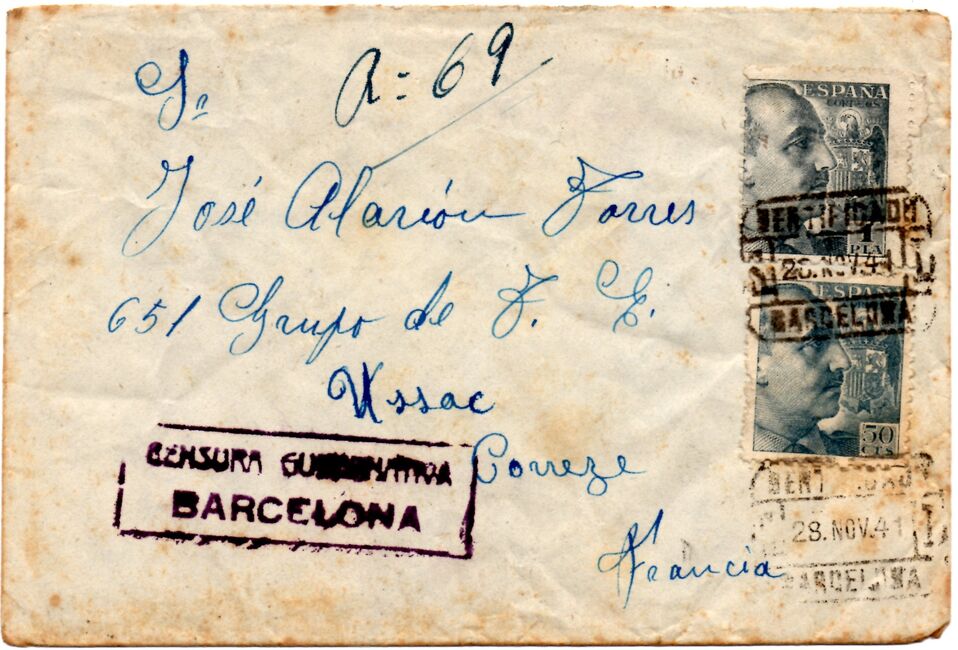 Sr
R=69
José Alarión Torres
651 Grupo de T. E.
Ussac
Correze
Francia
CENSURA GUBERNATIVA
BARCELONA
ESPAÑA
CORREOS
1
PTA
CERTIFICADO
28.NOV.41
BARCELONA
ESPAÑA
50
CTS
CERTIFICADO
28.NOV.41
BARCELONA